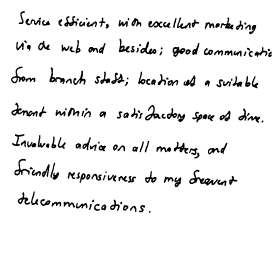 Service efficient, with excellent marketing
via the web and besides; good communication
from branch staff; location of a suitable
tenant within a satisfactory space of time.
Invaluable advice on all matters, and
friendly responsiveness to my frequent
telecommunications.